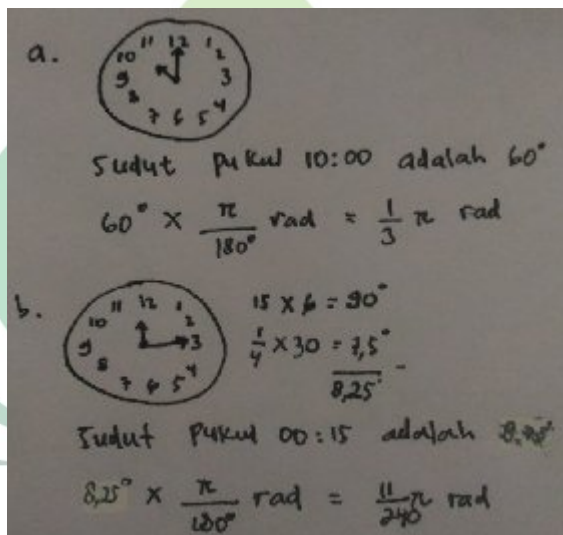 a.
11 12 1
10 2
9 3
8 4
7 6 5
Sudut pukul 10:00 adalah 60°
60° × π/180° rad = 1/3 π rad
b.
11 12 1
10 2
9 3
8 4
7 6 5
15 × 6 = 90°
1/4 × 30 = 7,5° -
8,25°
Sudut pukul 00:15 adalah
8,25° × π/180° rad = 11/240 π rad